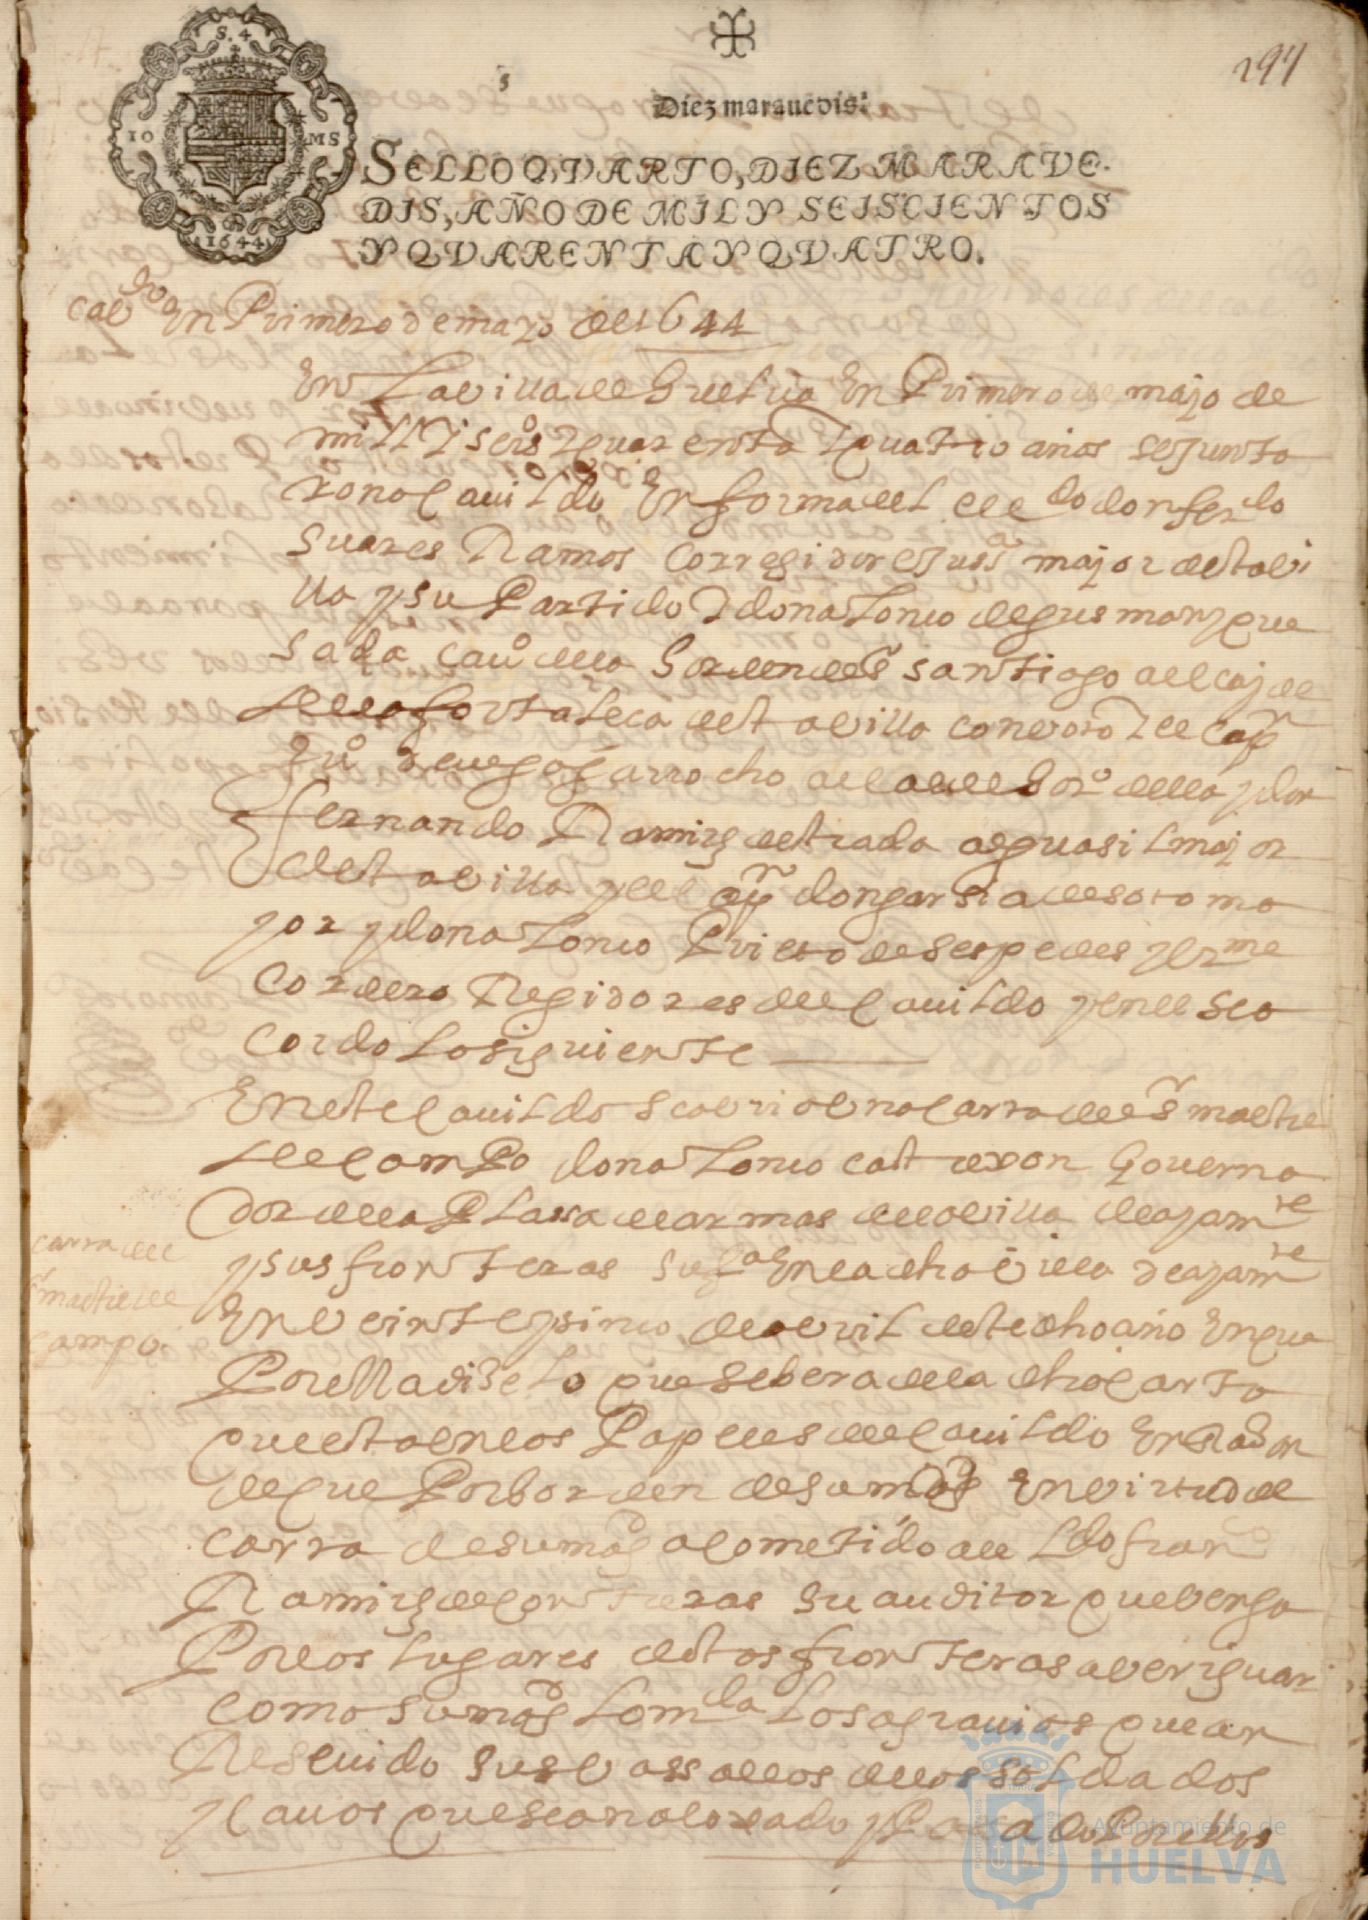 297
S. 4
10 MS
1644
Diez marauedis.
SELLO QVARTO, DIEZ MARAVE-
DIS, AÑO DE MIL Y SEISCIENTOS
Y QVARENTA Y QVATRO.
cavdo en Primero de mayo de 1644
En la villa de Guelva En Primero de mayo de
mill y seisº y quarenta y quatro años se junta
ron a cavildo En forma el Lcdo don ferdo
Suares Ramos Corregidor e Jussª mayor desta vi
lla y su Partido y don antonio de gusman y que
sada cavº de la horden de sr santiago alcayde
de la fortaleca desta villa con voto y el capn
garrocho alcalde horº della y don
fernando Ramirs destrada alguasil mayor
desta villa y el capn don garsia de soto ma
yor y don antonio Prieto de sespedes y
Cordero Regidores del cavildo y en el se a
cordo lo siguiente
En este cavildo se avrio una carta del sr maestre
de campo don antonio Governa
dor de la Plassa de armas de la villa de ayamte
y sus fronteras su fª En la dha villa de ayamte
En veinte y sinco de avril deste dho año En que
Por ella dise lo que se bera de la dha carta
que esta en los Papeles del cavildo En Rason
de que Por horden de su magd En virtud de
carta de su magd a cometido al Ldo franco
Ramirs de contreras su auditor que benga
Por los lugares destas fronteras a veriguar
como su magd lo mda los agravios que an
Resevido sus vassallos de los soldados
y cavos que se an aloxado y Pasado Por ellos
carta del
sr maestre de
campo.
Ayuntamiento de
HUELVA